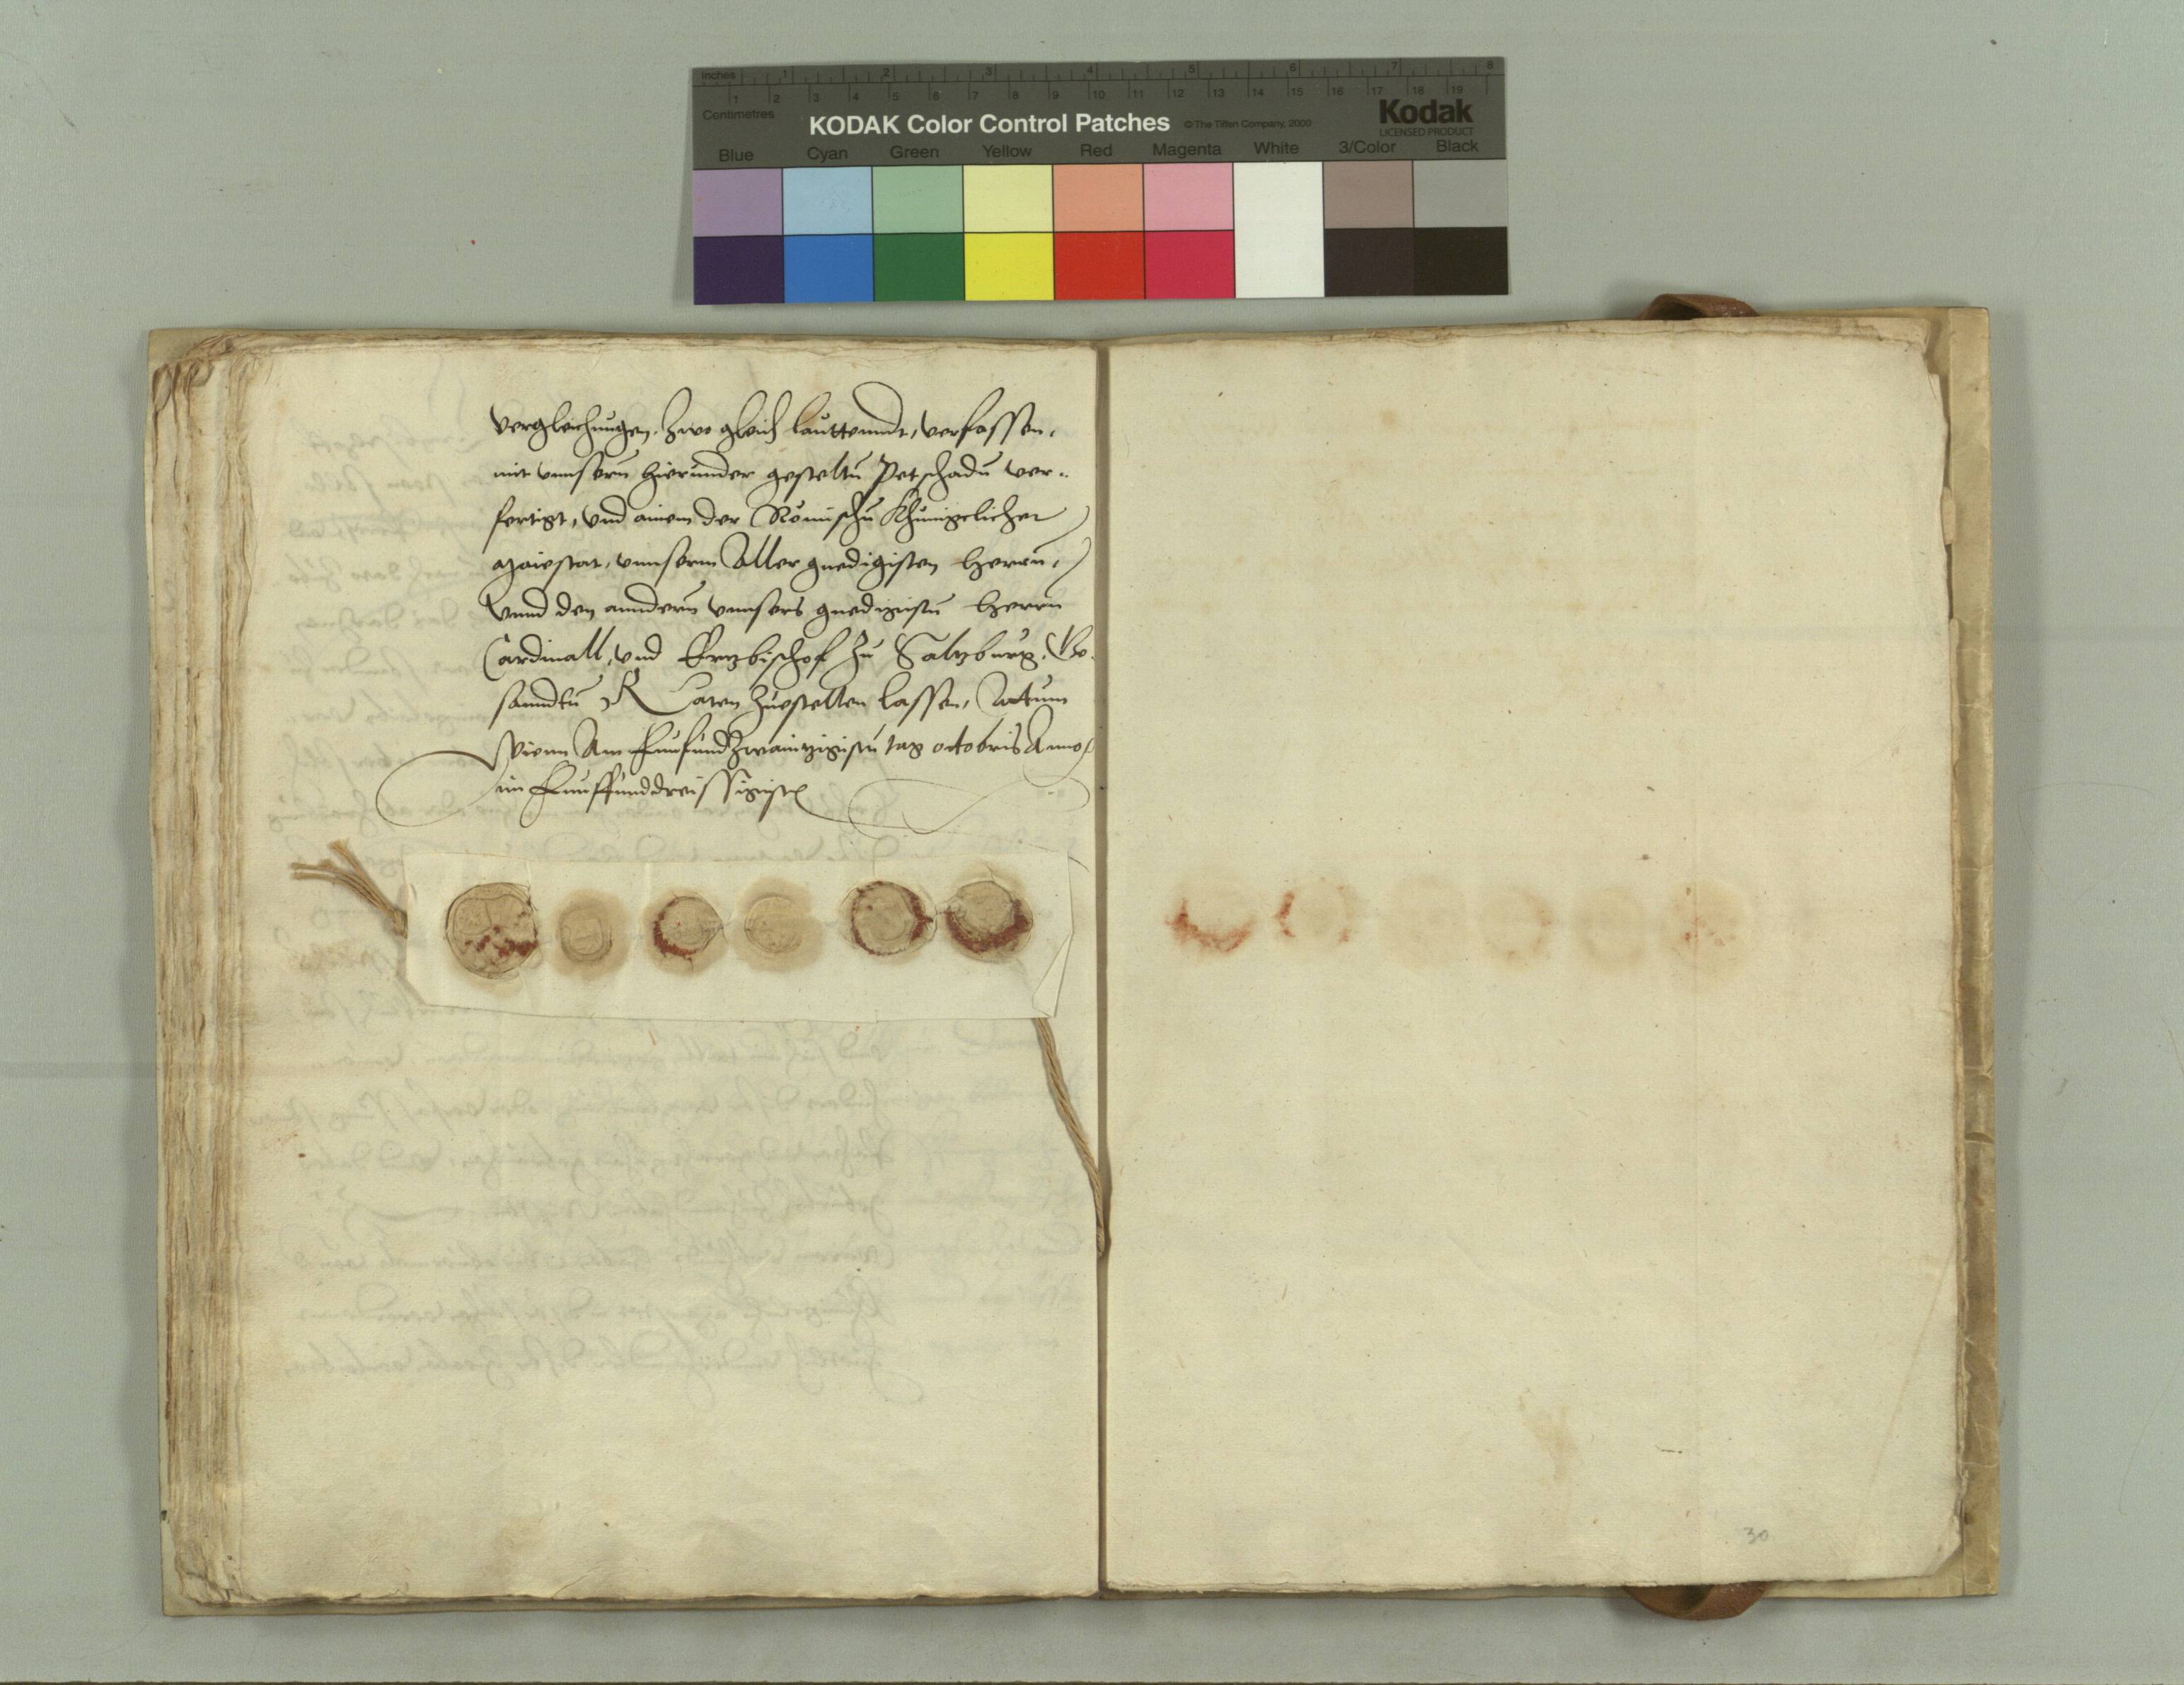 inches 1 2 3 4 5 6 7 8
1 2 3 4 5 6 7 8 9 10 11 12 13 14 15 16 17 18 19
Centimetres
KODAK Color Control Patches ©The Tiffen Company, 2000
Kodak
LICENSED PRODUCT
Blue Cyan Green Yellow Red Magenta White 3/Color Black
vergleichungen, zwo gleich lauttenndt, verfassen,
mit unnsern hierunder gesteltn Petschadn ver-
fertigt, und ainem der Römischn Khunigclicher
Maiestat, unnserm Aller gnedigisten herrn,
unnd den anndern unnsers gnedigistn herrn
Cardinall, und Ertzbischof zu Saltzburg, Ge-
sanndtn Räten zuestellen lassen, Actum
Wienn Am Funfundzwaintzigistn tag octobris Anno
im Funffunddreissigistn
30